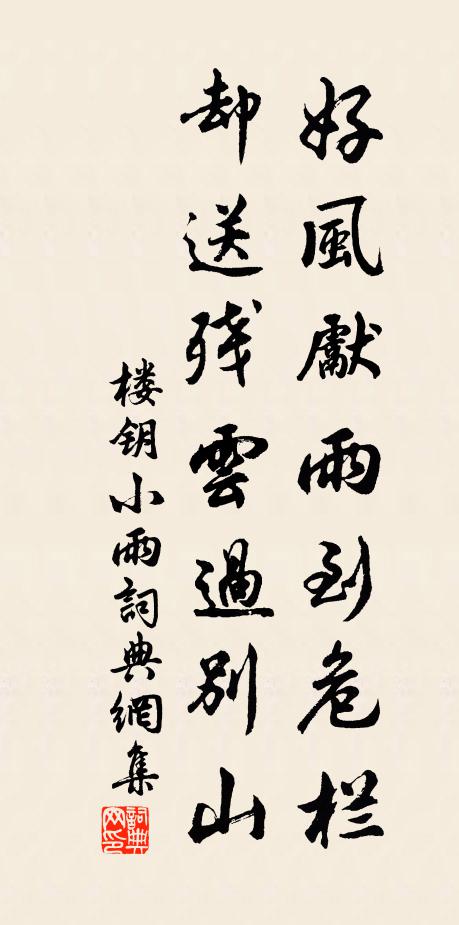 好風獻雨到危栏
却送残雲過別山
楼钥小雨詞典網集
詞典网印